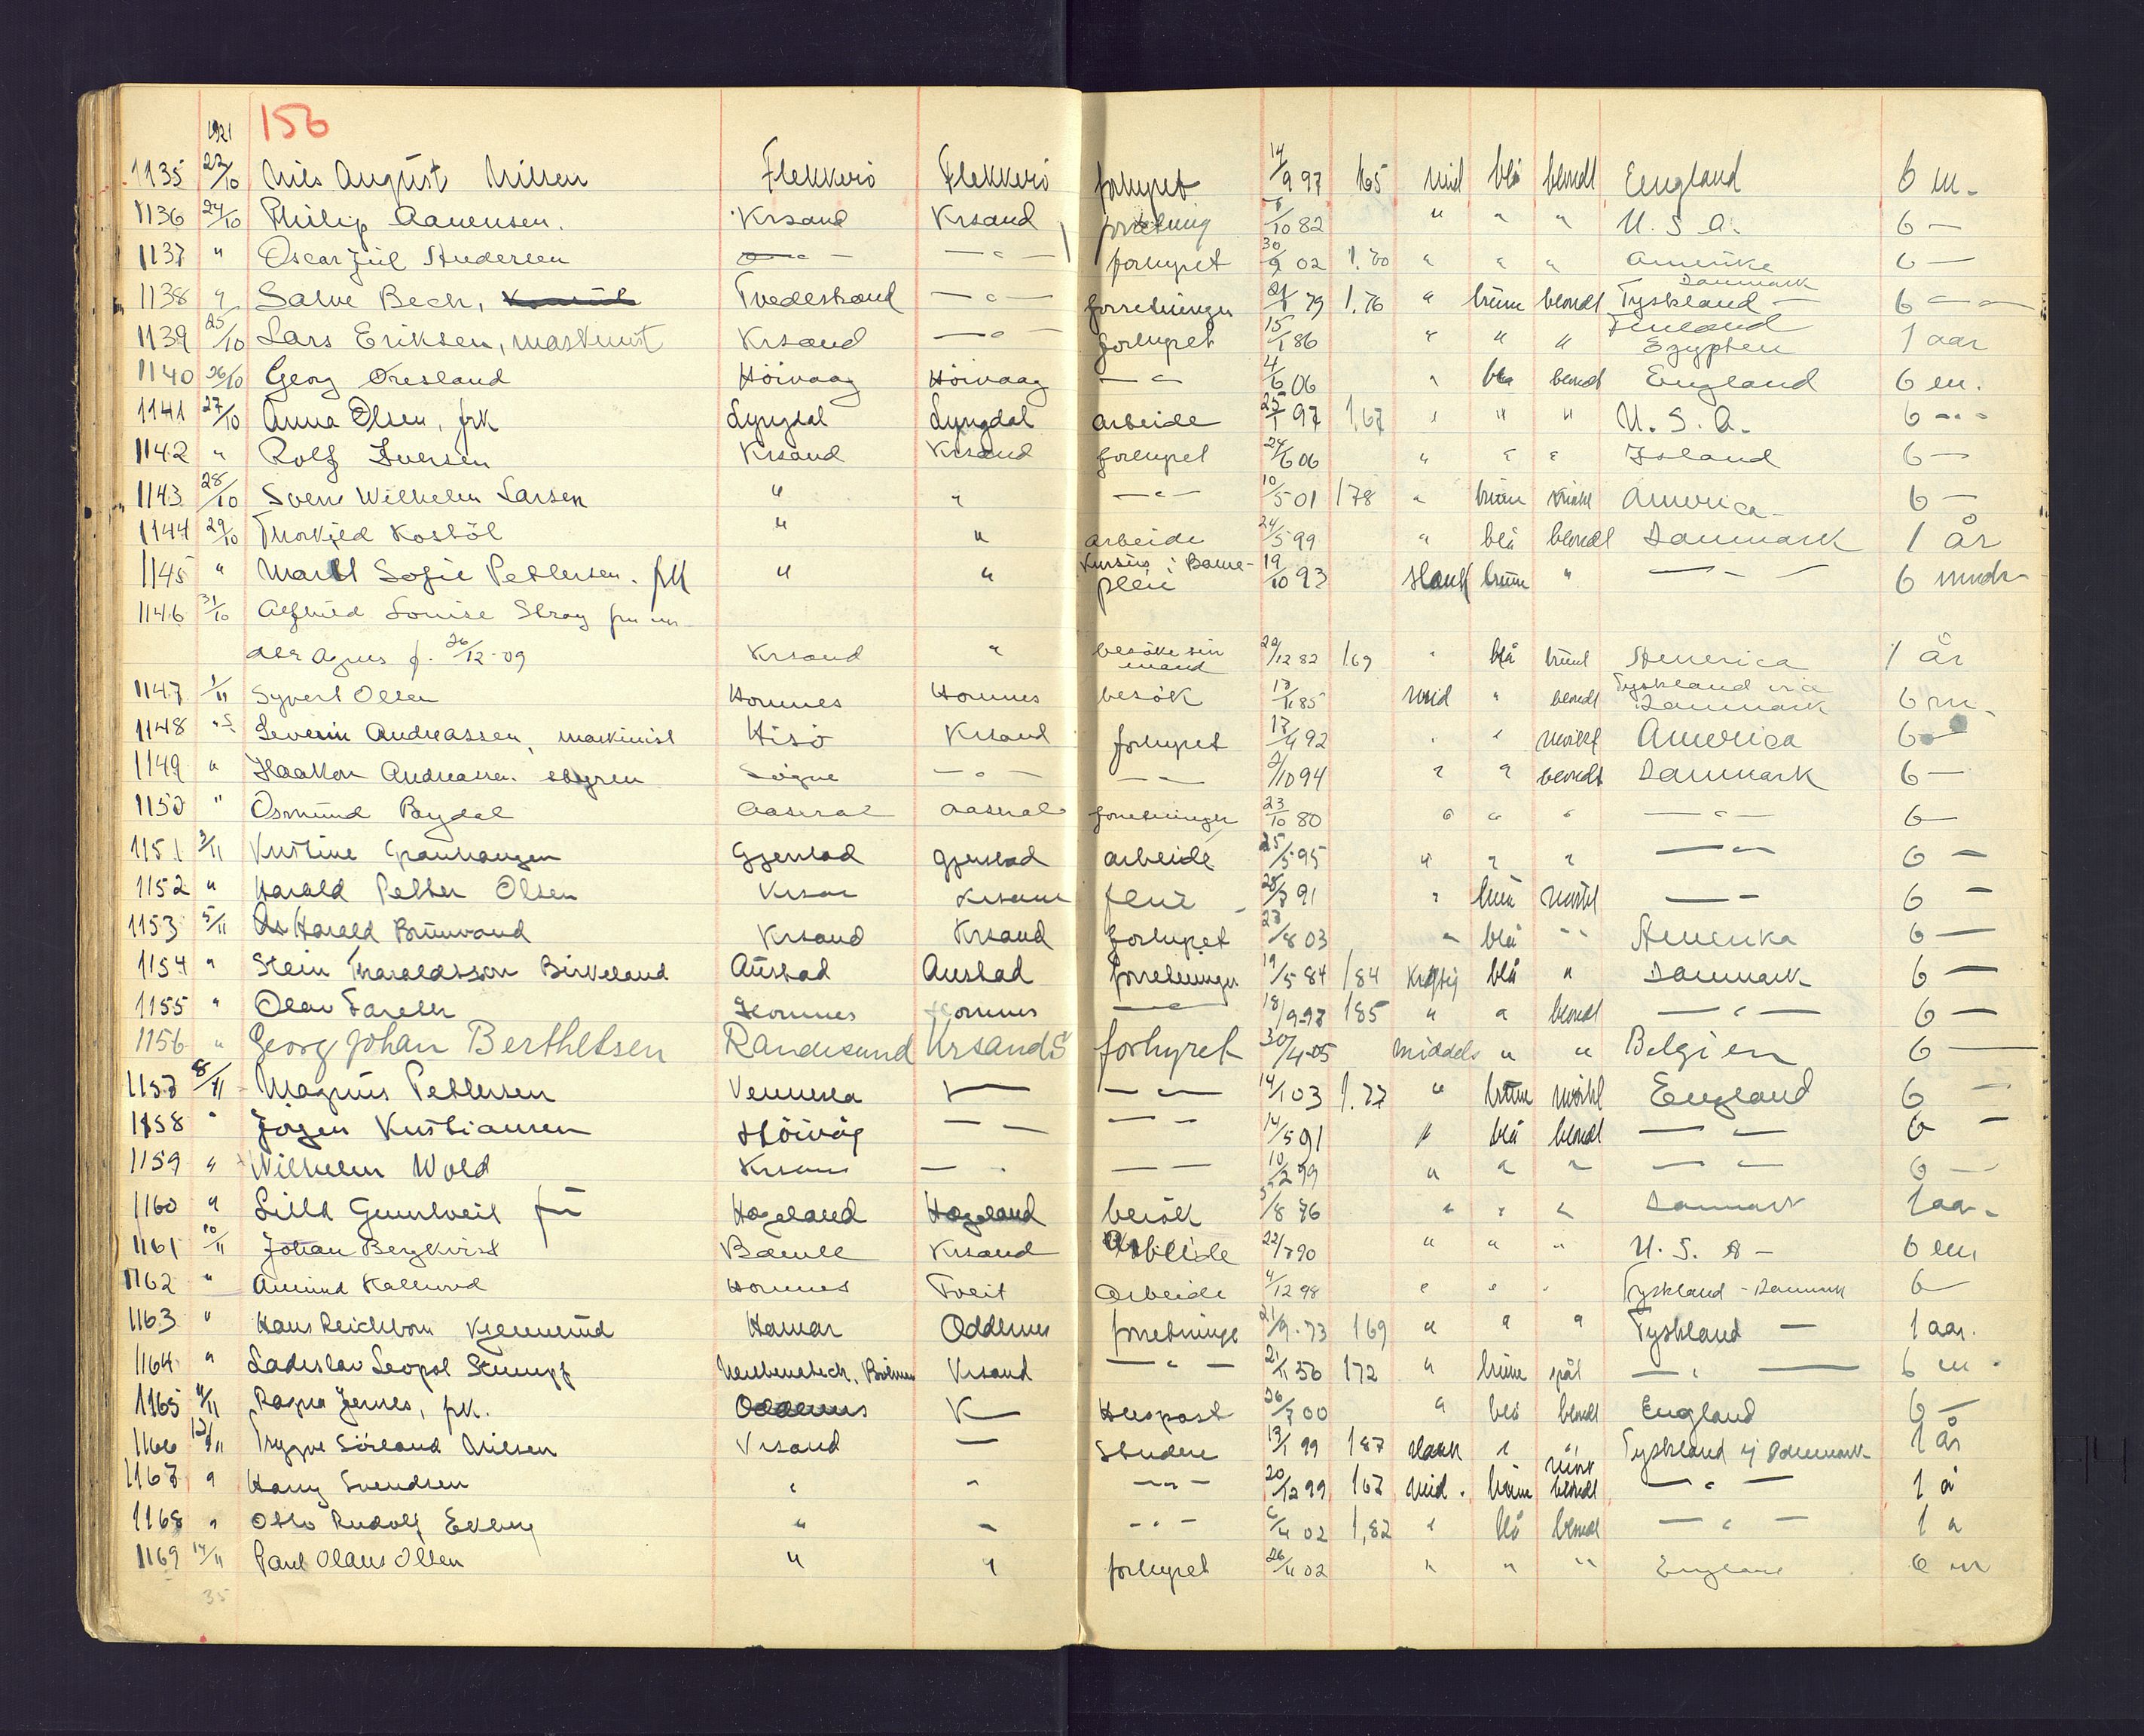 1921 156
1135 22/10 Nils August Nilsen Flekkerö Flekkerö forhyret 14/9 97 165 mid blå blondt England 6 m.
1136 24/10 Philip Aanensen. Krsand Krsand forretning /10 82 " " " U.S.A. 6 —
1137 " Oscar Juul Andersen — " — — " — forhyret 30/9 02 1.70 " " " Amerika 6 —
Danmark
1138 " Salve Bech, Tvedestrand — " — forretninger 79 1.76 " brune blondt Tyskland — 6 — —
Finland
1139 25/10 Lars Eriksen, maskinist Krsand — " forhyret 15/1 86 " " " Egypten 1 aar
1140 26/10 Georg Øresland Höivaag Höivaag — " — 4/6 06 " blå blondt England 6 m.
1141 27/10 Anna Olsen, frk Lyngdal Lyngdal arbeide 25/1 97 1.67 " " " U.S.A. 6 — " —
1142 " Rolf Iversen Krsand Krsand forhyret 24/6 06 " " " Island 6 —
1143 28/10 Svere Wilhelm Larsen " " — " — 10/5 01 178 " brune America 6 —
1144 29/10 Thorkjed Kostöl " " arbeide 24/5 99 " blå blondt Danmark 1 år
1145 " Sofie Pettersen. frk " " Kursus i Barne-
pleie 19/10 93 slank brune " — " — 6 mndr
1146 31/10 Alfhild Louise Stray fru
Agnes f. 26/12-09 Krsand " besöke sin
mand 29/12 82 169 " blå brunt America 1 år
1147 1/11 Syvert Olsen Hornnes Hornnes besök 85 mid " blondt Tyskland via
Danmark 6 m.
1148 " Severin Andreassen, maskinist Hisö Krsand forhyret 17/4 92 " " mörkt America 6 —
1149 " Haakon Andreassen. styrm Sögne — " — — — 2/10 94 " " blondt Danmark 6 —
1150 " Osmund Bydal Aaseral Aaseral forretninger 23/10 80 " " " — " — 6 —
1151 3/11 Kristine Granhaugen Gjerstad Gjerstad arbeide 25/5 95 " " " — " — 6 —
1152 " Harald Petter Olsen Krsan Krsand 91 " mörkt — — 6 —
1153 5/11 Harald Brunvand Krsand Krsand forhyret 23/8 03 " blå " Amerika 6 —
1154 " Stein Tharaldsson Birkeland Austad Austad forretninger 19/5 84 184 Kraftig blå " Danmark 6 —
1155 " Olav Hornnes Hornnes — " — 18/9 97 185 " " blondt — " — 6 —
1156 " Georg Johan Berthelsen Randesund KrsandS forhyret 30/4-05 middels " " Belgien 6 —
1157 8/11 Magnus Pettersen Vennesla K— — " — 14/1 03 1.77 " brune mörkt England 6 —
1158 " Jörgen Kristiansen Höivåg — — — " — 14/5 91 " blå blondt — — 6 —
1159 " Wilhelm Wold Krsans — " — — 10/2 99 " " " — — 6 —
1160 " Gunleveit fru Hægeland Hægeland besök /8 76 " " " Danmark 1 aar
1161 10/11 Johan Bergkvist Bamle Krsand Arbeide 22/7 90 " " " U.S.A — 6 m
1162 " Hornnes Tveit Arbeide 4/12 98 " " " Tyskland - Danmark 6 —
1163 " Hans Reichborn Kjennerud Hamar Oddernes forretninge 21/9-73 169 " " " Tyskland — 1 aar.
1164 " Ladislav Leopol Stumpf Böhmen Krsand — " — 21/11 56 172 " brune — " — 6 m.
1165 11/11 Ragna Jernes, frk. Oddernes K— Huspost 26/7 00 " blå blondt England 6 —
1166 12/11 Trygve Sörland Nilsen Krsand — Studere 13/1 99 187 slank " " Tyskland Danmark 1 år
1167 " Harry Svendsen " " — " — 20/12 99 167 mid. brune mörk
blondt — " — 1 å
1168 " Otto Rudolf " " — " — 02 1,82 " blå blondt — " — 1 a
1169 14/11 Paul Olaus Olsen " " forhyret 26/11 02 " " " England 6 m
35